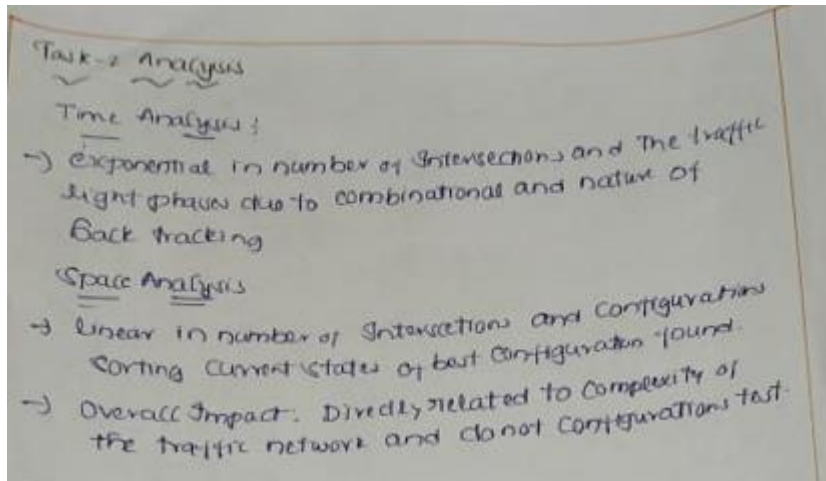 Task-2 Analysis
Time Analysis :
→ exponential in number of Intersections and The traffic
light phases due to combinational and nature of
Back tracking
Space Analysis
→ linear in number of Intersections and Configurations
Sorting Current states of best Configuration found.
→ Overall Impact: Directly related to Complexity of
the traffic network and Configurations test.